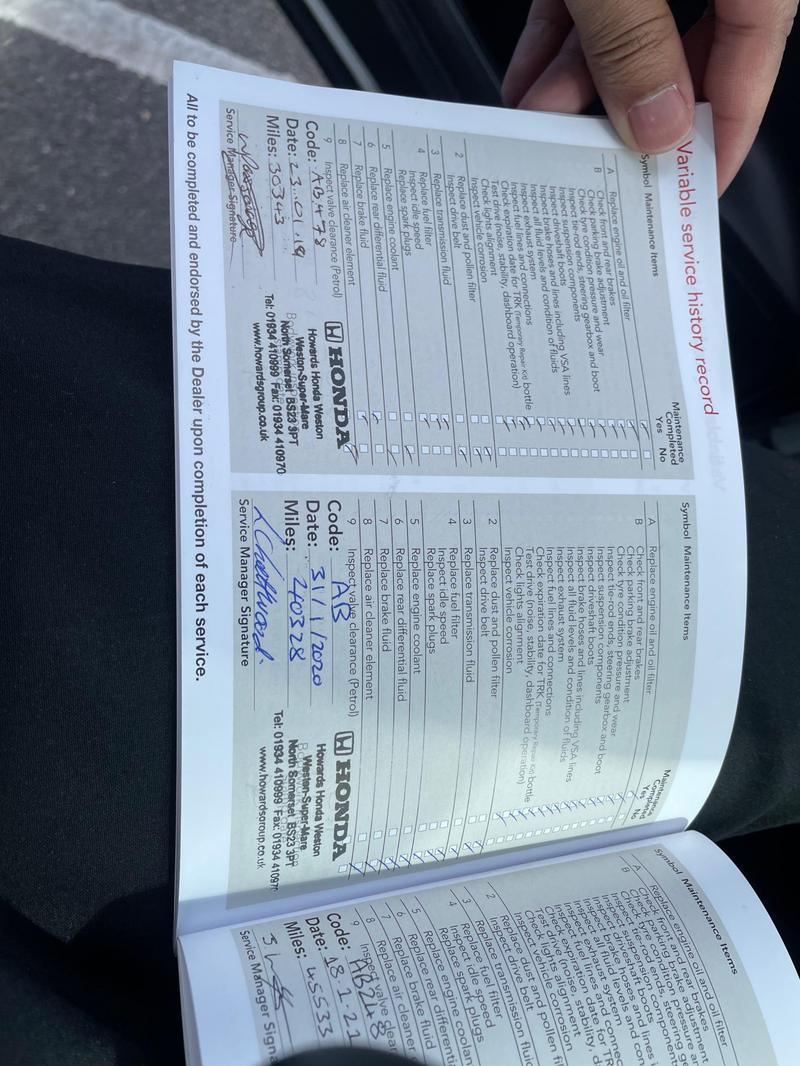 Variable service history record
Symbol Maintenance Items
Maintenance
Completed
Yes No
A Replace engine oil and oil filter
B Check front and rear brakes
Check parking brake adjustment
Check tyre condition pressure and wear
Inspect tie-rod ends, steering gearbox and boot
Inspect suspension components
Inspect driveshaft boots
Inspect brake hoses and lines including VSA lines
Inspect all fluid levels and condition of fluids
Inspect exhaust system
Inspect fuel lines and connections
Check expiration date for TRK (Temporary Repair Kit) bottle
Test drive (noise, stability, dashboard operation)
Check lights alignment
Inspect vehicle corrosion
2 Replace dust and pollen filter
Inspect drive belt
3 Replace transmission fluid
4 Replace fuel filter
Inspect idle speed
Replace spark plugs
5 Replace engine coolant
6 Replace rear differential fluid
7 Replace brake fluid
8 Replace air cleaner element
9 Inspect valve clearance (Petrol)
Code: AB478
Date: 23.01.19
Miles: 30343
Service Manager Signature
HONDA
Howards Honda Weston
Weston-Super-Mare
North Somerset BS23 3PT
Tel: 01934 410999 Fax: 01934 410970
www.howardsgroup.co.uk
Symbol Maintenance Items
Maintenance
Completed
Yes No
A Replace engine oil and oil filter
B Check front and rear brakes
Check parking brake adjustment
Check tyre condition pressure and wear
Inspect tie-rod ends, steering gearbox and boot
Inspect suspension components
Inspect driveshaft boots
Inspect brake hoses and lines including VSA lines
Inspect all fluid levels and condition of fluids
Inspect exhaust system
Inspect fuel lines and connections
Check expiration date for TRK (Temporary Repair Kit) bottle
Test drive (noise, stability, dashboard operation)
Check lights alignment
Inspect vehicle corrosion
2 Replace dust and pollen filter
Inspect drive belt
3 Replace transmission fluid
4 Replace fuel filter
Inspect idle speed
Replace spark plugs
5 Replace engine coolant
6 Replace rear differential fluid
7 Replace brake fluid
8 Replace air cleaner element
9 Inspect valve clearance (Petrol)
Code: AB
Date: 31/1/2020
Miles: 40328
Service Manager Signature
HONDA
Howards Honda Weston
Weston-Super-Mare
North Somerset BS23 3PT
Tel: 01934 410999 Fax: 01934 41097
www.howardsgroup.co.uk
All to be completed and endorsed by the Dealer upon completion of each service.
Symbol Maintenance Items
A Replace engine oil and oil filter
B Check front and rear brakes
2 Replace dust and pollen fi
Inspect drive belt
3 Replace transmission fluid
4 Replace fuel filter
Inspect idle speed
Replace spark plugs
5 Replace engine coolan
6 Replace rear differenti
7 Replace brake fluid
8 Replace air cleaner
9 Inspect valve clear
Code: AB248
Date: 18.1.21
Miles: 45533
Service Manager Signa